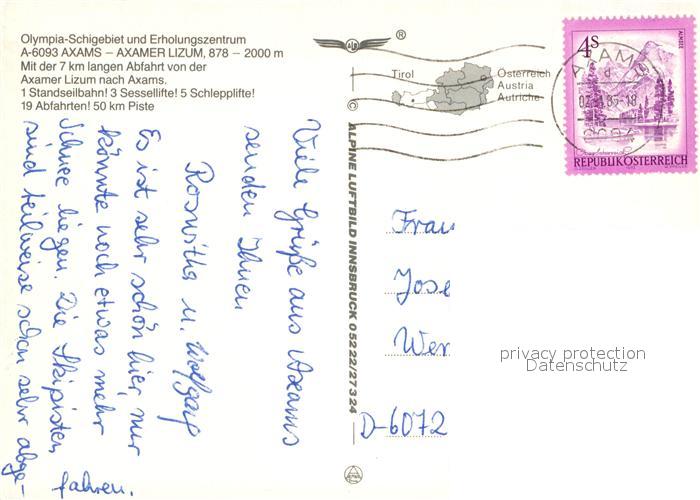 Olympia-Schigebiet und Erholungszentrum
A-6093 AXAMS – AXAMER LIZUM, 878 – 2000 m
Mit der 7 km langen Abfahrt von der
Axamer Lizum nach Axams.
1 Standseilbahn! 3 Sessellifte! 5 Schlepplifte!
19 Abfahrten! 50 km Piste
Viele Grüße aus Axams
senden Ihnen
Roswitha u. Wolfgang
Es ist sehr schön hier, nur
könnte noch etwas mehr
Schnee liegen. Die Skipisten
sind teilweise schon sehr abge-
fahren.
®
Tirol
Österreich
Austria
Autriche
© ALPINE LUFTBILD INNSBRUCK 05222/27324
4S
ALMSEE
AXAMS
REPUBLIK ÖSTERREICH
Frau
Jose
Wer
D-6072
privacy protection
Datenschutz